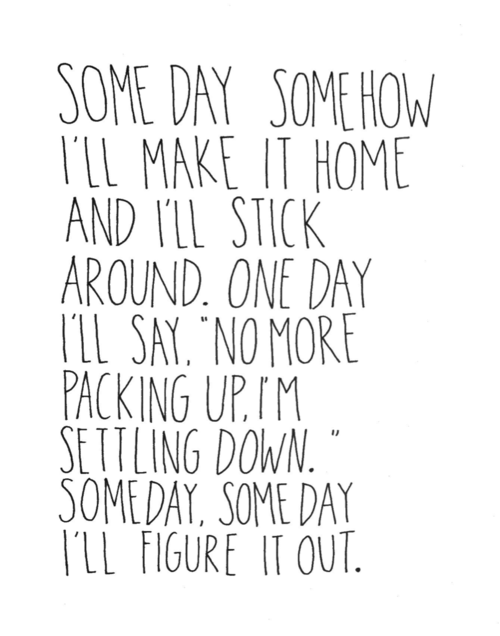 SOME DAY SOMEHOW
I'LL MAKE IT HOME
AND I'LL STICK
AROUND. ONE DAY
I'LL SAY, "NO MORE
PACKING UP, I'M
SETTLING DOWN."
SOMEDAY, SOME DAY
I'LL FIGURE IT OUT.